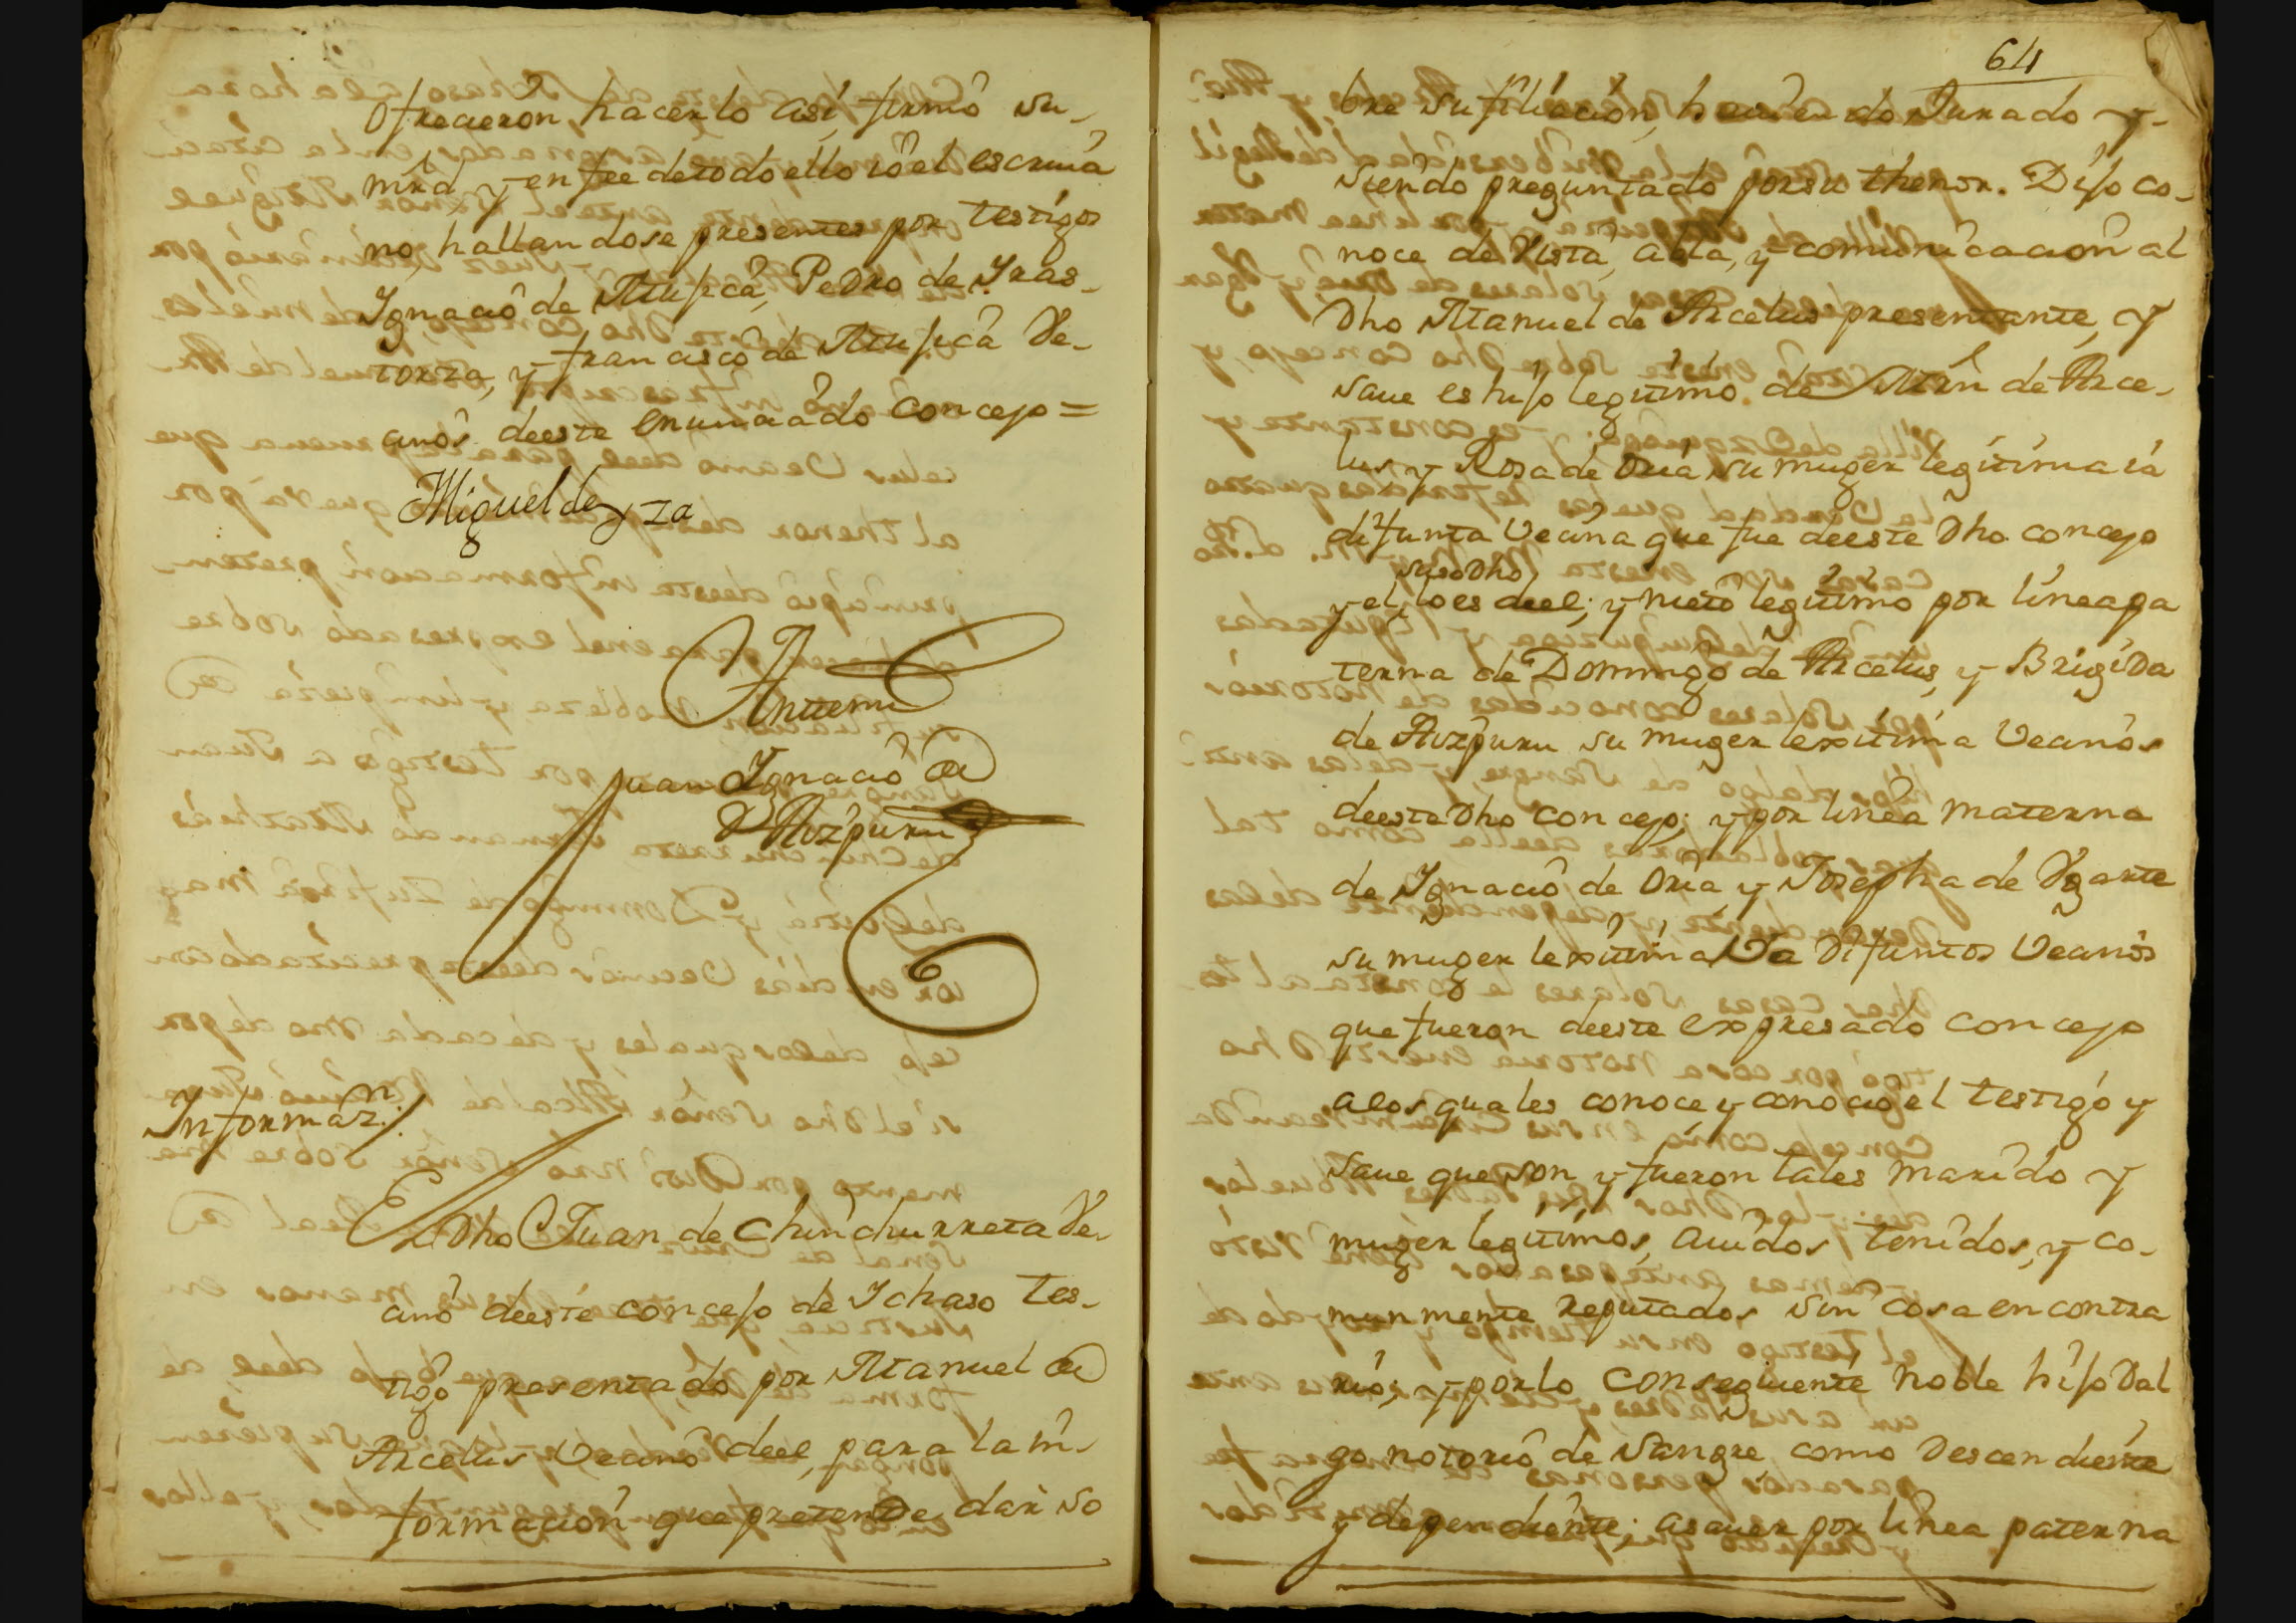 ofrecieron hacerlo asi, firmó su
mrd y en fee de todo ello io el escriva
no, hallandose presentes por testigos
Ignacio de Mujica, Pedro de Iras-
torza, y francisco de Mujica Ve-
cinos deeste enunciado Concejo =
Miguel de yza
Antemi
Juan Ignacio de
Aizpuru
Informaz.n
El Dho Juan de Chinchurreta Ve-
cino deeste concejo de Ichaso tes-
tigo presentado por Manuel de
Arcelus Vecino deel, para la in-
formacion que pretende dar so
64
bre su filiacion, haviendo Jurado y-
siendo preguntado por su thenor. Dijo co-
noce de Vista, abla, y comunicacion al
Dho Manuel de Arcelus presentante, y
save es hijo legitimo de Mrn de Arce-
lus y Rosa de Oria su muger legitima ia
difunta Vecina que fue deeste Dho concejo
susodho
y el, lo es deel; y nieto legitimo por linea pa
terna de Domingo de Arcelus, y Brigida
de Aizpuru su muger lexitima Vecinos
deeste Dho concejo; y por linea materna
de Ignacio de Oria, y Josepha de Vgarte
su muger lexitima Ya Difuntos Vecinos
que fueron deeste expresado concejo
alos quales conoce y conocio el testigo y
save que son, y fueron tales marido y
muger legitimos, avidos tenidos, y co-
munmente reputados sin cosa en contra
rio; y por lo conseguiente noble hijo Dal
go notorio de Sangre como Descendiente
y dependiente; asaver por linea paterna